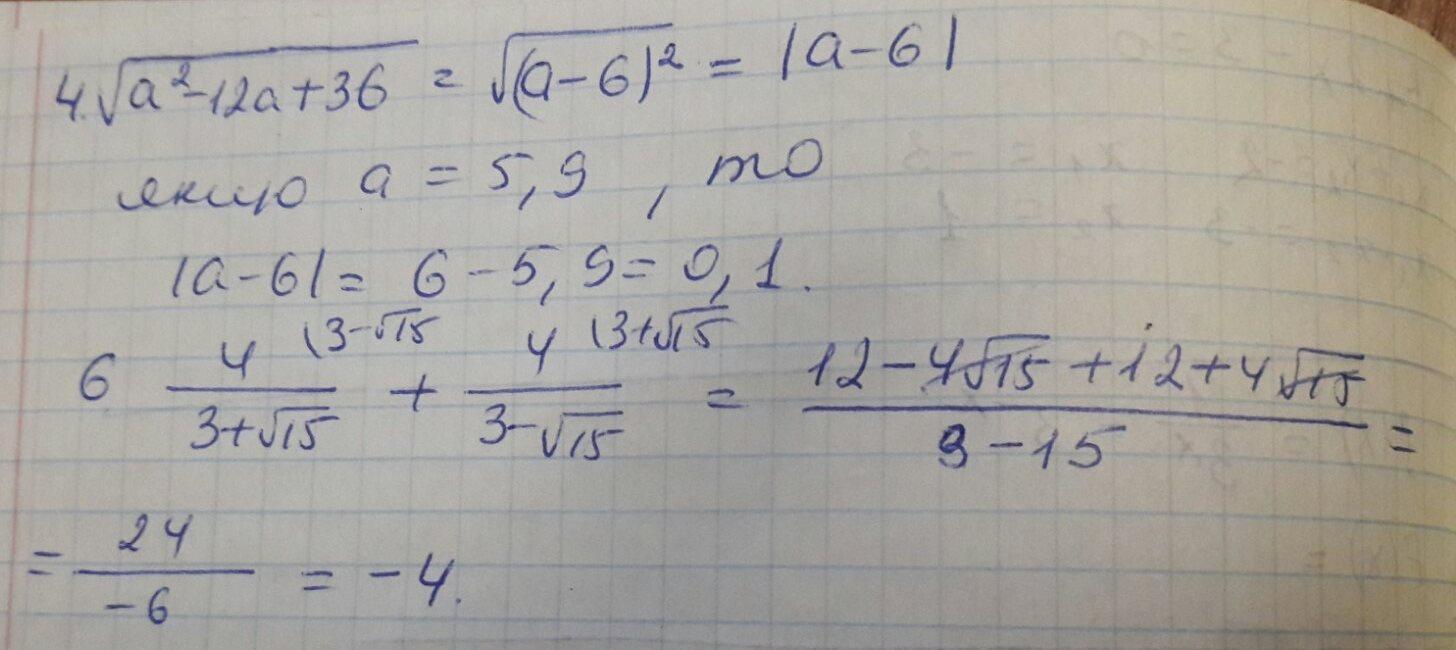 4. √(a²-12a+36) = √((a-6)²) = |a-6|
якщо a = 5,9 , то
|a-6| = 6-5,9 = 0,1.
6 4/(3+√15) (3-√15 + 4/(3-√15) (3+√15 = (12-4√15+12+4√15)/(9-15) =
= 24/-6 = -4.